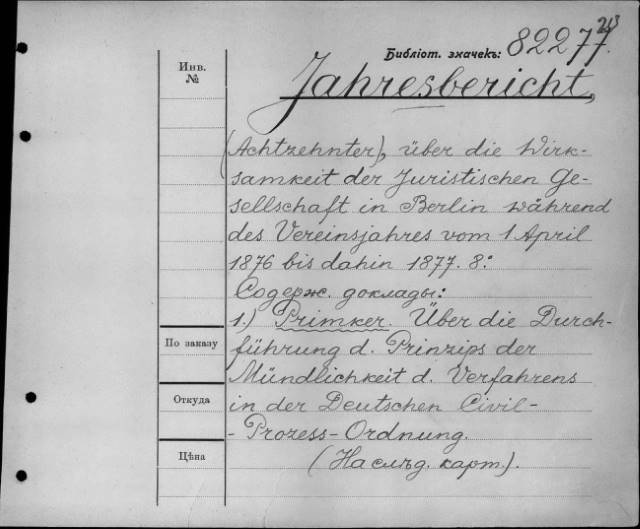 Библіот. значекъ: 82277.
Инв.
№
Jahresbericht,
(Achtzehnter), über die Wirk-
samkeit der Juristischen Ge-
sellschaft in Berlin während
des Vereinsjahres vom 1 April
1876 bis dahin 1877. 8:
Содерж. доклады:
1.) Primker. Über die Durch-
По заказу
führung d. Prinzips der
Mündlichkeit d. Verfahrens
Откуда
in der Deutschen Civil-
-Prozess-Ordnung.
Цѣна
(На слѣд. карт.).